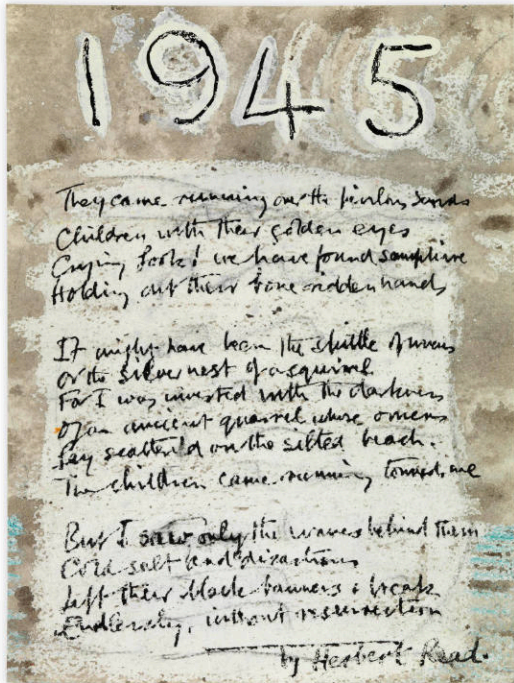 1945
They came running over the perilous sands
Children with their golden eyes
Crying Look! we have found samphire
Holding out their bone ridden hands
It might have been the spittle of wrens
Or the silver nest of a squirrel
For I was invested with the darkness
Of an ancient quarrel whose omens
Lay scatter'd on the silted beach.
The children came running toward me
But I saw only the waves behind them
Cold salt and disastrous
Lift their black banners & break
Endlessly, without resurrection
by Herbert Read.